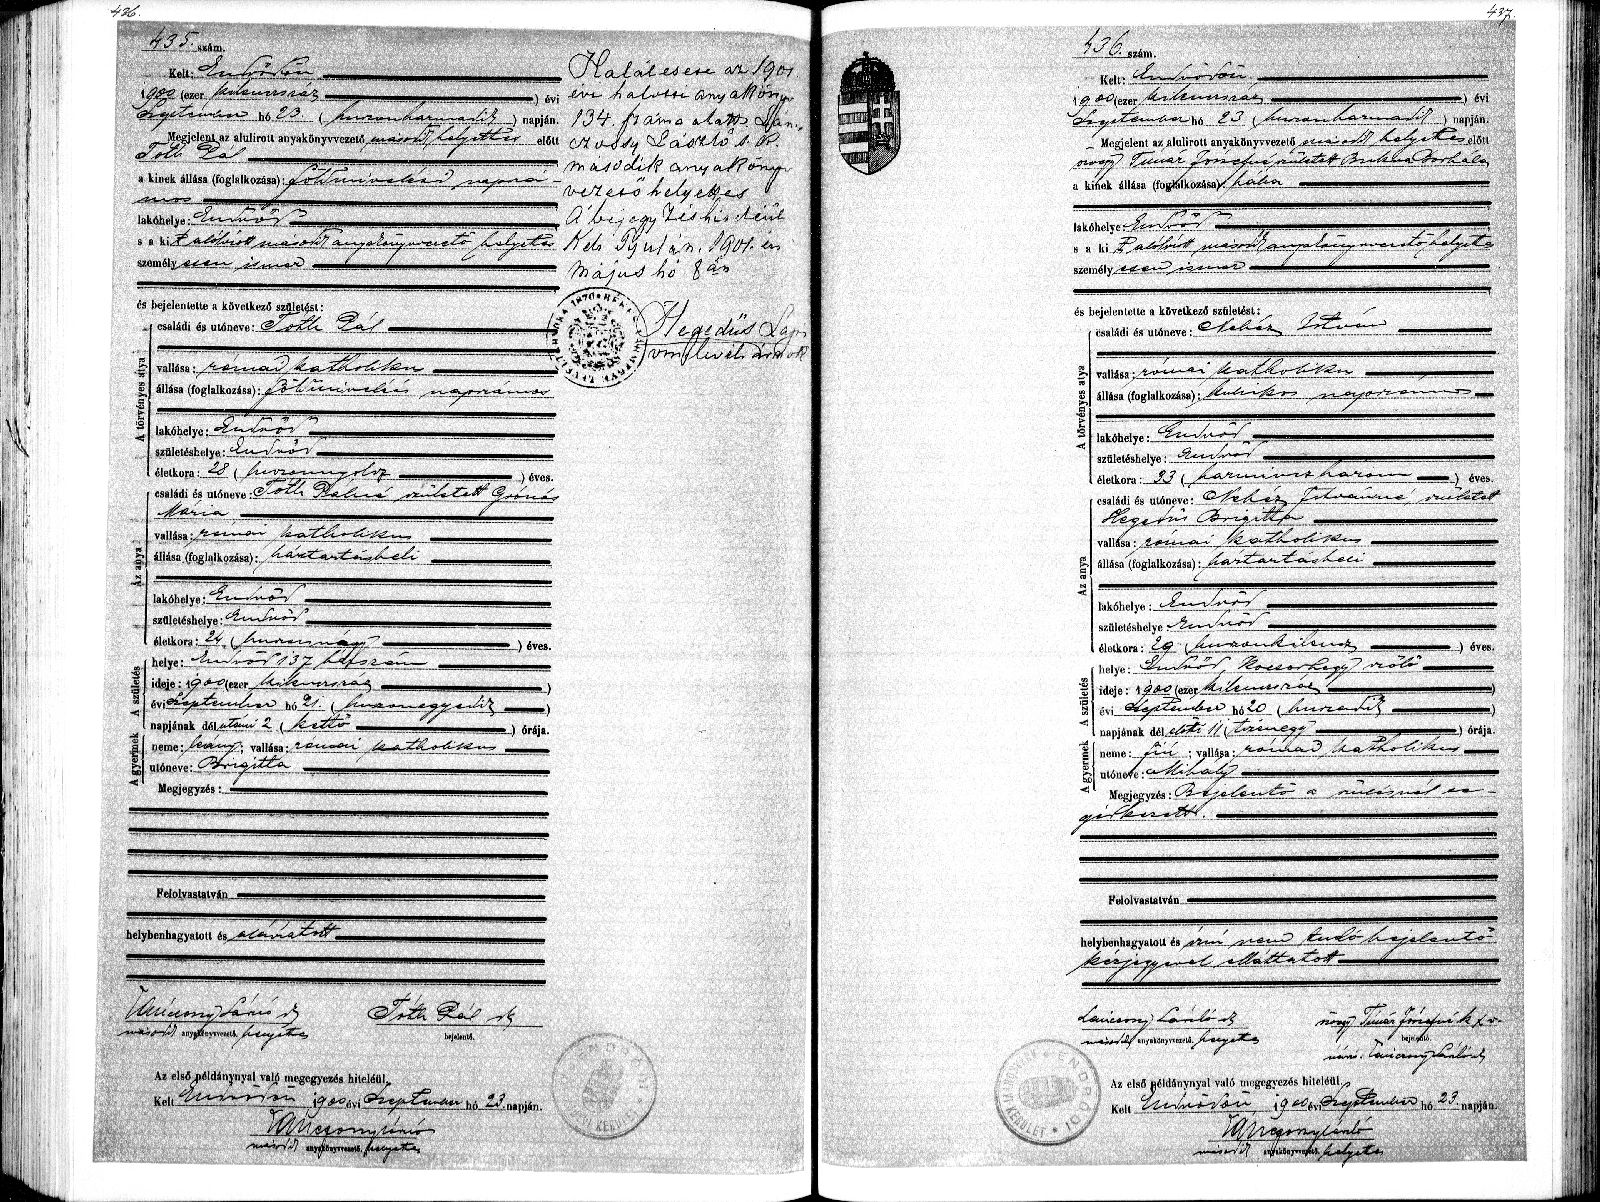 436.
435. szám.
Kelt: Endrődön
1900 (ezer kilenczszáz) évi
Szeptember hó 23 (huszonharmadik) napján.
Megjelent az alulirott anyakönyvvezető másodk helyettes előtt
Tóth Pál
a kinek állása (foglalkozása): földmivelési napszá-
mos
lakóhelye: Endrőd
s a kit alólírott másodk anyakönyvvezető helyettes
személyesen ismer
és bejelentette a következő születést:
A törvényes atya
családi és utóneve: Tóth Pál
vallása: római katholikus
állása (foglalkozása): földmivelési napszámos
lakóhelye: Endrőd
születéshelye: Endrőd
életkora: 28 (huszonnyolcz) éves.
Az anya
családi és utóneve: Tóth Pálné született
Mária
vallása: római katholikus
állása (foglalkozása): háztartásbeli
lakóhelye: Endrőd
születéshelye: Endrőd
életkora: 24 (huszonnégy) éves.
A születés
helye: Endrőd 137 házszám
ideje: 1900 (ezer kilenczszáz)
évi Szeptember hó 21. (huszonegyedik)
napjának dél utáni 2 (kettő) órája.
A gyermek
neme: leány; vallása: római katholikus
utóneve: Brigitta
Megjegyzés:
Felolvastatván
helybenhagyatott és aláíratott
Lánczony László sk
másodk anyakönyvvezető. helyettes
Tóth Pál sk
bejelentő.
Az első példánynyal való megegyezés hiteléül,
Kelt Endrődön 1900 évi Szeptember hó 23. napján.
Lánczony László
másodk anyakönyvvezető. helyettes
Halálesete az 1901
évi halotti anyakönyv
134. száma alatt
László s. k.
második anyakönyv
vezető helyettes
A bejegyzés hiteléül
Kelt Gyulán, 1901. évi
május hó 8 án
Hegedüs
vm. levéltárnok
437.
436. szám.
Kelt: Endrődön
1900 (ezer kilenczszáz) évi
Szeptember hó 23 (huszonharmadik) napján.
Megjelent az alulirott anyakönyvvezető másodk helyettes előtt
özvegy Timár Józsefné született Borbála
a kinek állása (foglalkozása): bába
lakóhelye: Endrőd
s a kit alólírott másodk anyakönyvvezető helyettes
személyesen ismer
és bejelentette a következő születést:
A törvényes atya
családi és utóneve: Nehéz István
vallása: római katholikus
állása (foglalkozása): kubikos napszámos
lakóhelye: Endrőd
születéshelye: Endrőd
életkora: 33 (harminczhárom) éves.
Az anya
családi és utóneve: Nehéz Istvánné, született
Hegedüs Brigitta
vallása: római katholikus
állása (foglalkozása): háztartásbeli
lakóhelye: Endrőd
születéshelye: Endrőd
életkora: 29 (huszonkilencz) éves.
A születés
helye: Endrőd Kossorhegy szőlő
ideje: 1900 (ezer kilenczszáz)
évi Szeptember hó 20 (huszadik)
napjának dél előtti 11 (tizenegy) órája.
A gyermek
neme: fiú; vallása: római katholikus
utóneve: Mihály
Megjegyzés: Bejelentő a szülésnél se-
gédkezett.
Felolvastatván
helybenhagyatott és írni nem tudó bejelentő
kézjegyével elláttatott
Lánczony László sk
másodk anyakönyvvezető. helyettes
özvegy Timár Józsefné k x v.
bejelentő.
névi: Lánczony László sk
Az első példánynyal való megegyezés hiteléül,
Kelt Endrődön, 1900 évi Szeptember hó 23. napján.
Lánczony László
másodk anyakönyvvezető. helyettes